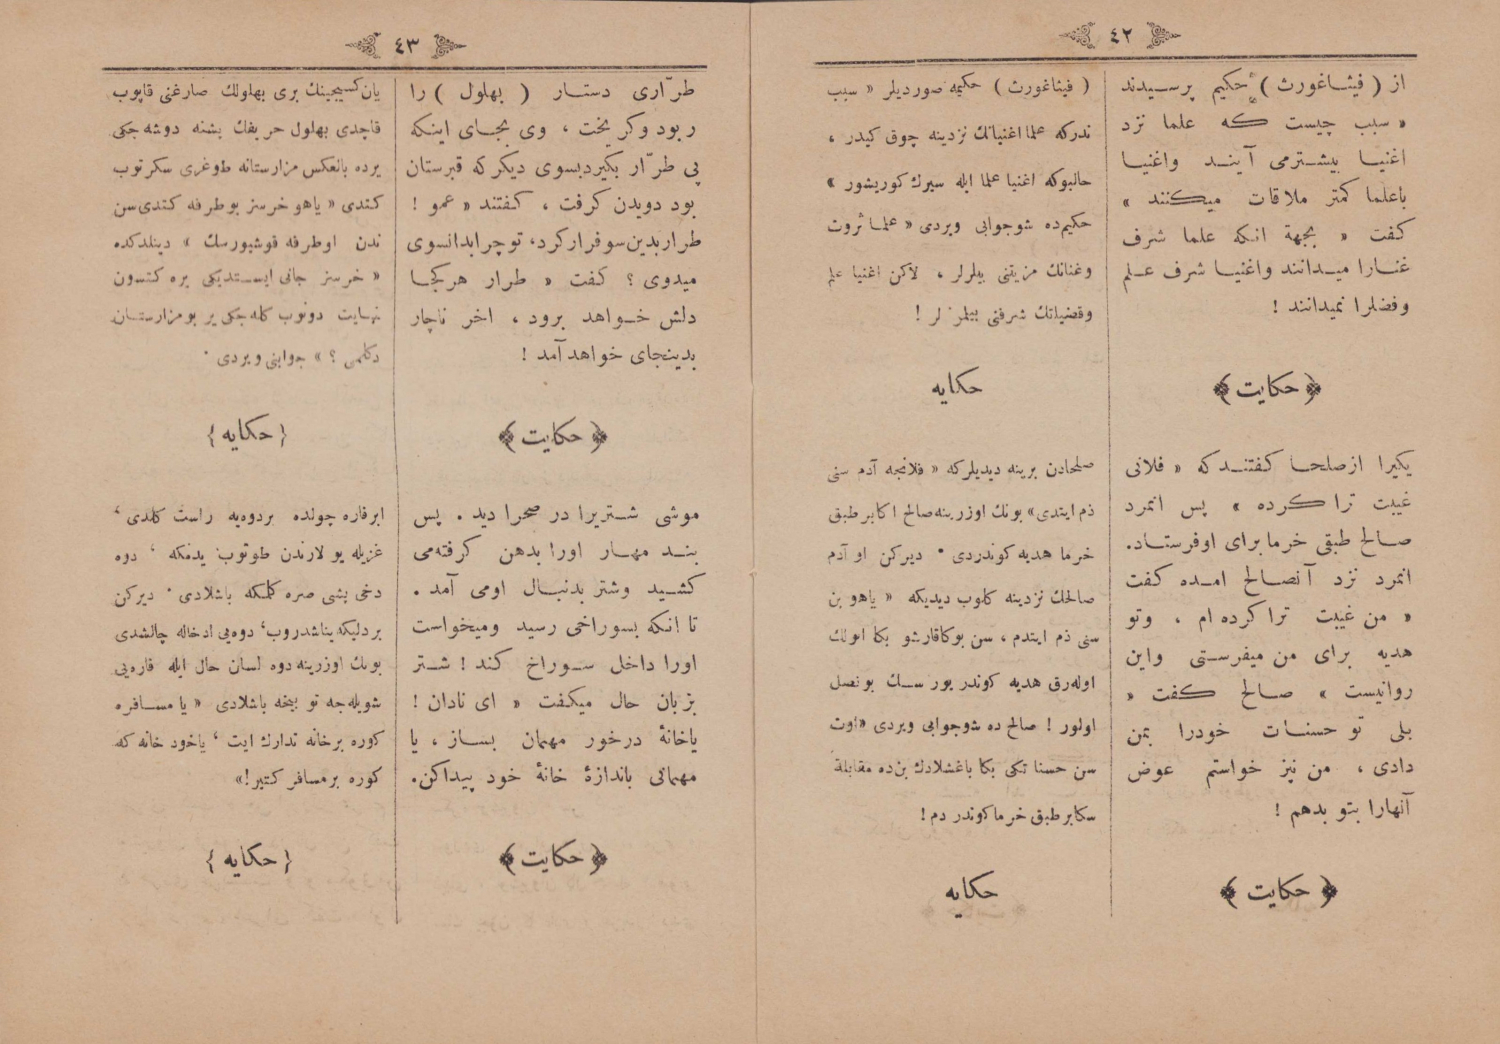 ٤٢
از ( فیثاغورث ) حکیم پرسیدند
« سبب چیست که علما نزد
اغنیا بیشترمی آیند واغنیا
باعلما کمتر ملاقات میکنند »
کفت « بجهة انکه علما شرف
غنارا میدانند واغنیا شرف علم
وفضلرا نمیدانند !
﴿ حکایت ﴾
یکیرا ازصلحا کفتندکه « فلانی
غیبت ترا کرده » پس انمرد
صالح طبقی خرما برای اوفرستاد.
انمرد نزد آنصالح امده کفت
« من غیبت ترا کرده ام ، وتو
هدیه برای من میفرستی واین
روانیست » صالح کفت «
بلی تو حسنات خودرا بمن
دادی ، من نیز خواستم عوض
آنهارا بتو بدهم !
﴿ حکایت ﴾
( فیثاغورث ) حکیمه صوردیلر « سبب
ندرکه علما اغنیانك نزدینه چوق کیدر ،
حالبوکه اغنیا علما ایله سیرك کوریشور »
حکیم‌ده شوجوابی ویردی « علما ثروت
وغنانك مزیتنی بیلرلر ، لاکن اغنیا علم
وفضیلتك شرفنی بیلمزلر !
حکایه
صلحادن برینه دیدیلرکه « فلانجه آدم سنی
ذم ایتدی» بونك اوزرینه صالح اکابر طبق
خرما هدیه کوندردی . دیرکن او آدم
صالحك نزدینه کلوب دیدیکه « یاهو بن
سنی ذم ایتدم ، سن بوکاقارشو بکا
اوله‌رق هدیه کوندریورسك بونصل
اولور ! صالح ده شوجوابی ویردی «اوت
سن حسناتکی بکا باغشلادك بن‌ده مقابلۀ
سکابر طبق خرما کوندردم !
حکایه
٤٣
طرّاری دستار ( بهلول ) را
ربود وکریخت ، وی بجای اینکه
پی طرّار بکیردبسوی دیکرکه قبرستان
بود دویدن کرفت ، کفتند « عمو !
طرار بدین سو فرارکرد، تو چرا بدانسوی
میدوی ؟ کفت « طرار هرکجا
دلش خواهد برود ، اخر ناچار
بدینجای خواهد آمد !
﴿ حکایت ﴾
موشی شتریرا در صحرا دید . پس
بند مهار اورا بدهن کرفته‌می
کشید وشتر بدنبال اومی آمد .
تا انکه بسوراخی رسید ومیخواست
اورا داخل سوراخ کند ! شتر
بزبان حال میکفت « ای نادان !
یاخانۀ درخور مهمان بساز ، یا
مهمانی باندازۀ خانۀ خود پیداکن.
﴿ حکایت ﴾
یان کسیجینك بری بهلولك صارغنی قاپوب
قاچدی بهلول حریفك پشنه دوشه‌جکی
یرده بالعکس مزارستانه طوغری سکرتوب
کتدی « یاهو خرسز بوطرفه کتدی سن
ندن اوطرفه قوشیورسك » دینلدکده
« خرسز جانی ایستدیکی یره کتسون
نهایت دونوب کله‌جکی یر بومزارستان
دکلمی ؟ » جوابنی ویردی .
{ حکایه }
ابرفاره چولده بردوه‌یه راست کلدی ،
غزیله یولارندن طوتوب یدمکه ، دوه
دخی پشی صره کلمکه باشلادی . دیرکن
بردلیکه یناشدروب، دوه‌یی ادخاله چالشدی
بونك اوزرینه دوه لسان حال ایله فاره‌یی
شویله‌جه توبیخه باشلادی « یا مسافره
کوره برخانه تدارك ایت ، یاخود خانه که
کوره بر مسافر کتیر!»
{ حکایه }